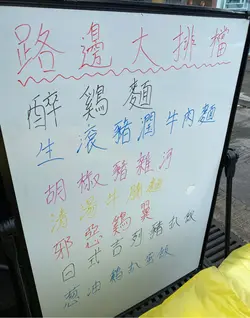 路邊大排檔
醉鷄麵
生滾豬潤牛肉麵
胡椒豬雜河
清湯牛腩麵
邪惡鷄翼
日式吉列豬扒飯
葱油鷄扒飯